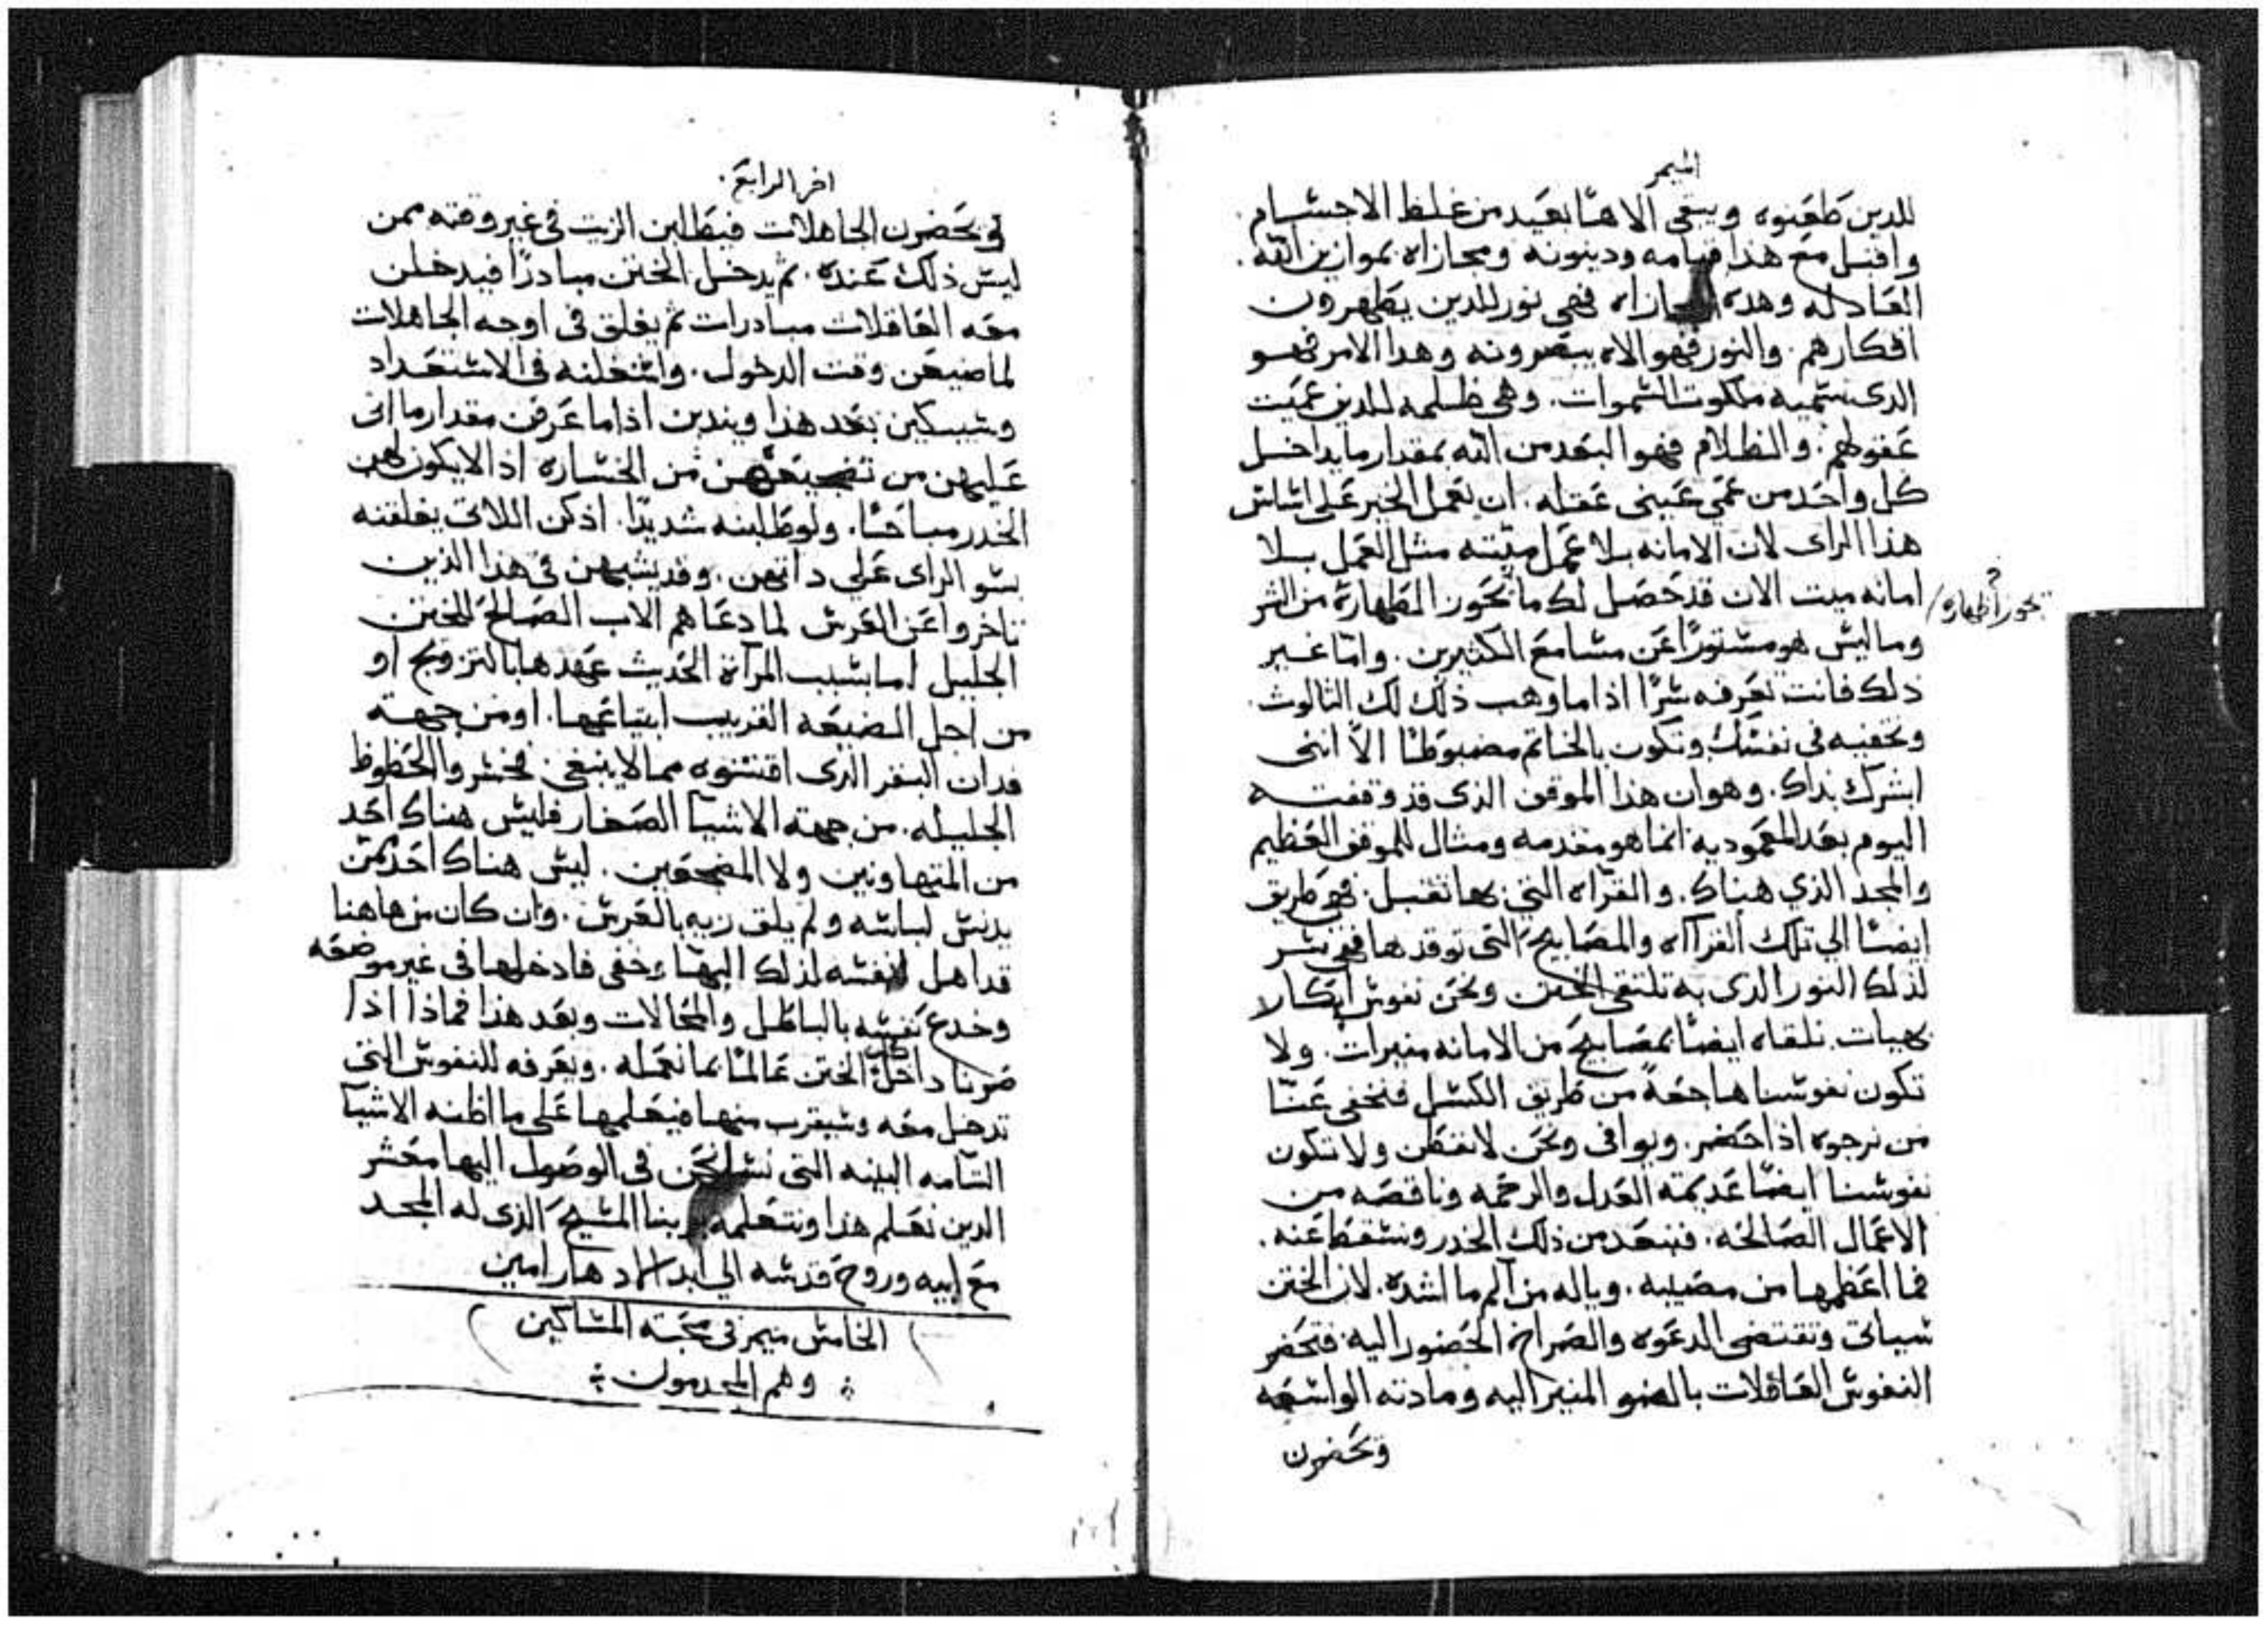 الميمر
للدين طعنوه ويبقى الاهنا بعيد من غلظ الاجسام
واقبل مع هذا قيامه ودينونه ومجازاه بموازين الله
العادله وهده المجازاه فهى نور للدين يطهرون
افكارهم والنور فهو الاه يبصرونه وهدا الامر فهو
الدى نسميه ملكوت السموات وهى ظلمه للدين عميت
عقولهم والظلام فهو البعد من الله بمقدار ما يداخل
كل واحد من عمي عينى عقله ان تعمل الخير على اساس
هذا الراى لان الامانه بلا عمل ميته مثل العمل بلا
امانه ميت الان قد حصل لك ما تحور اظهاره من السر
وما ليس هو مستورًا عن مسامع الكثيرين واما غير
ذلك فانت تعرفه سرًا اذا ما وهب ذلك لك الثالوث
وتخفيه في نفسك وتكون بالخاتم مضبوطًا الا اننى
ابشرك بداك وهو ان هذا الموقف الذى قد وقفته
اليوم بعد المعموديه انما هو مقدمه ومثال للموقف العظيم
والمجد الذي هناك والقراه التي بها تقبل فهى طريق
ايضًا الي تلك القراااه والمصابيح التى توقدها فهى سر
لذلك النور الدى به تلتقى الختن ونحن نفوس ابكار
بهيات نلقاه ايضًا بمصابيح من الامانه منيرات ولا
تكون نفوسنا هاجعةً من طريق الكسل فنخفى عنا
من نرجوه اذا حضر ويوافى ونحن لا نفطن ولا تكون
نفوسنا ايضًا عديمة العدل والرحمه وناقصه من
الاعمال الصالحه فنبعد من ذلك الخدر ونسقط عنه
فما اعظمها من مصيبه وياله من الم ما اشده لان الختن
سياتى وتقتضى الدعوه والصراخ الحضور اليه فتحضر
النفوس العاقلات بالضو المنير اليه ومادته الواسعه
وتحضرن
اخر الرابع
وتحضرن الجاهلات فيطلبن الزيت في غير وقته ممن
ليس ذلك عنده ثم يدخل الختن مبادرًا فيدخلن
معه العاقلات مبادرات ثم يغلق في اوجه الجاهلات
لما ضيعن وقت الدخول واشغلنه في الاستعداد
وسيبكين بعد هذا ويندبن اذا ما عرفن مقدار ما اتى
عليهن من تضجيعهن من الخساره اذ لا يكون لهن
الخدر مباحًا ولو طلبنه شديدًا اذ كن اللاتى يغلقنه
بسو الراى على داتهن وقد يشبههن في هذا الذين
تاخروا عن العرس لما دعاهم الاب الصالح للختن
الجليل اما بسبب المرآة الحديث عهدها بالتزويج او
من اجل الضيعه القريب ابتياعها او من جهة
فدان البقر الدى اقتنوه مما لا ينبغى فخسروا الحظوظ
الجليله من جهة الاشيآ الصغار فليس هناك احد
من المتهاونين ولا المضجعين ليس هناك احد ممن
يدنس لباسه ولم يلق زيه بالعرس وان كان من هاهنا
قد اهل نفسه لذلك البهاء خفى فادخلها في غير موضعه
وخدع نفسه بالباطل والمحالات وبعد هذا فماذا اذا
صرنا داخل كان الختن عالمًا بما نعمله ويعرفه للنفوس التى
تدخل معه وسيقرب منها فيعلمها على ما اظنه الاشيآ
التامه البينه التى نسل نحن في الوصول اليها معشر
الدين نعلم هذا ونتعلمه بربنا المسيح الذى له المجد
مع ابيه وروح قدسه الي ابد الادهار امين
الخامس ميمر في محبة المساكين
وهم المجدمون